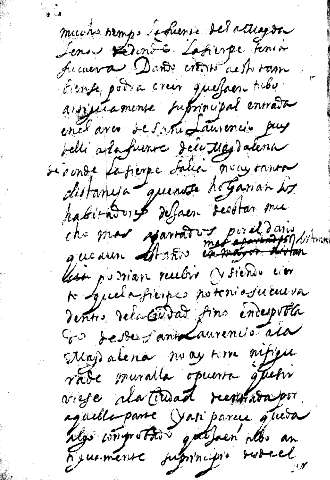 mucho tiempo la fuente de la Magda
lena y donde la sierpe tenia
su cueva Dando credito a esto tam
bien se podra creer que Jaen tubo
antiguamente su principal entrada
en el arco de Sant Laurencio pues
de alli a la fuente de la Magdalena
de donde la sierpe salia no ay tanta
distancia que no se hiçieran los
habitadores de Jaen de estar mu
cho mas apartados por el daño
que aun estando
podrian recibir y siendo cier
to que la sierpe no tenia su cueva
dentro de la Ciudad sino en despobla
do desde Sant Laurencio a la
Magdalena no ay torre ni figu
ra de muralla o puerta que sir
viese a la Ciudad de entrada por
aquella parte y asi pareçe queda
algo comprobado que Jaen tubo an
tiguamente su principio desde el